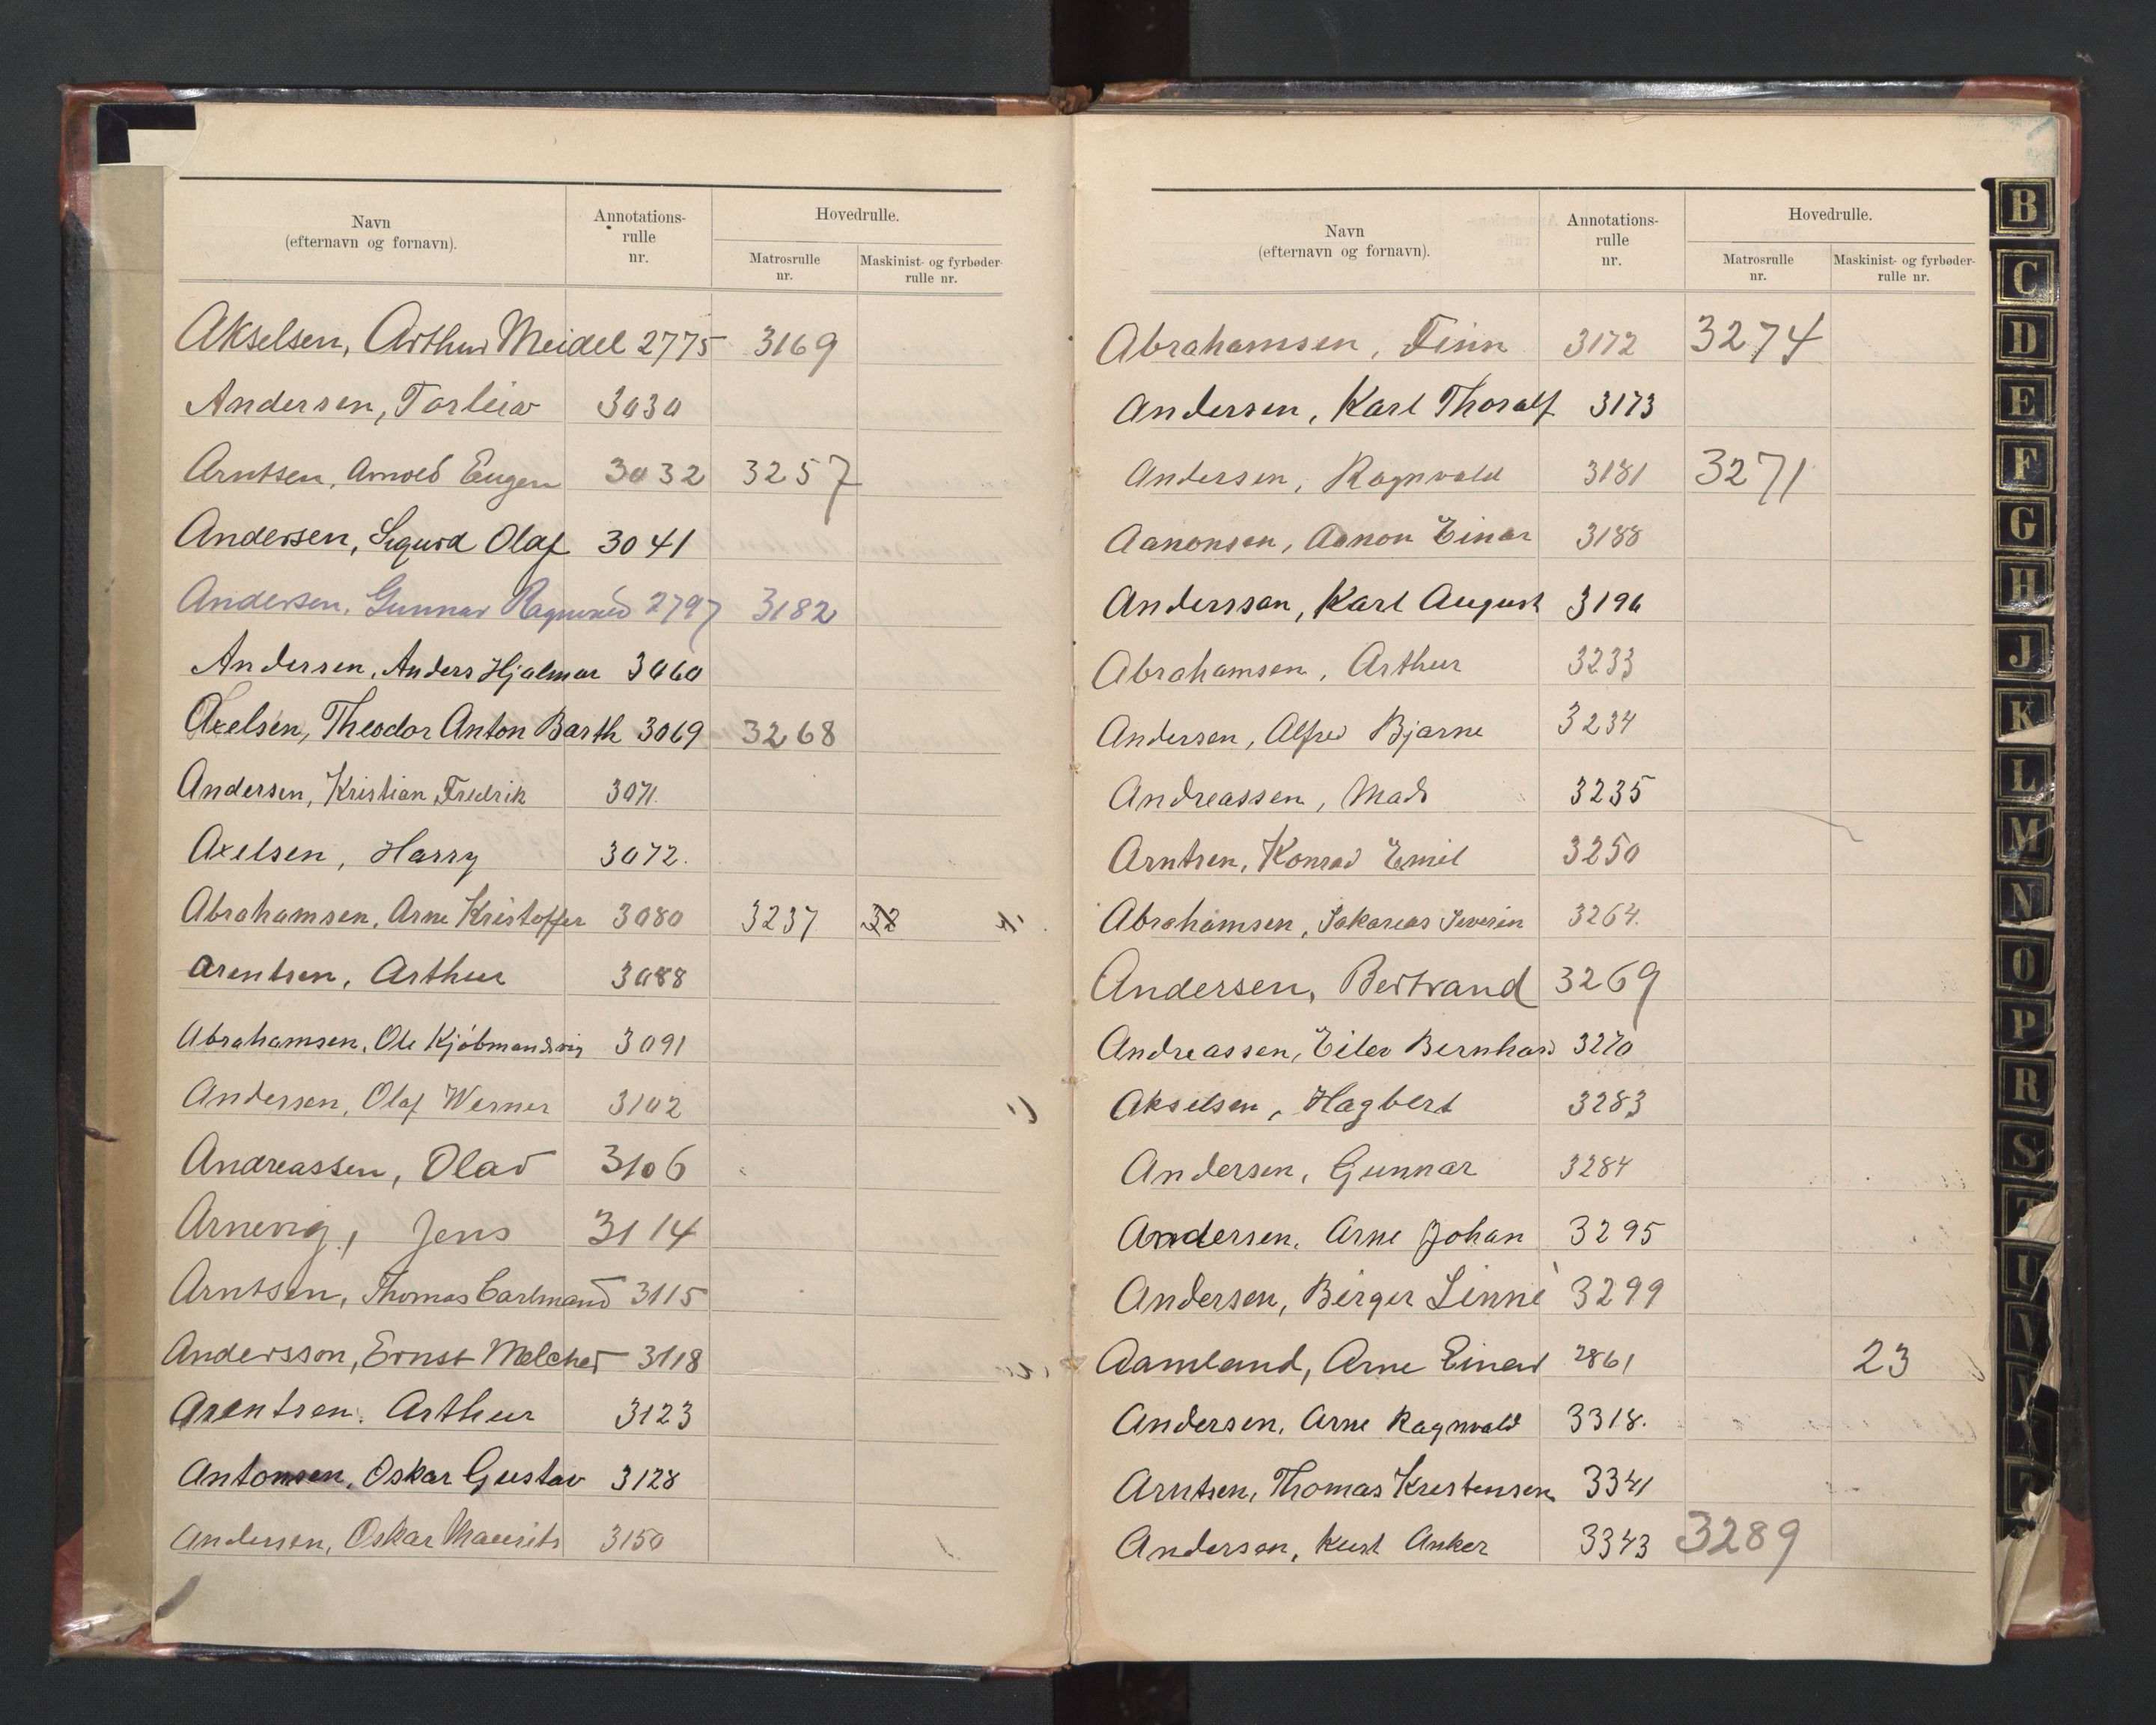 Navn
(efternavn og fornavn).
Annotations-
rulle
nr.
Hovedrulle.
Matrosrulle
nr.
Maskinist- og fyrbøder-
rulle nr.
Akselsen, Arthur Meidel 2775 3169
Andersen, Torleiv 3030
Arntsen, Arnold Eugen 3032 3257
Andersen, Sigurd Olaf 3041
Andersen, Gunnar Ragnvald 2797 3182
Andersen, Anders Hjalmar 3060
Axelsen, Theodor Anton Barth 3069 3268
Andersen, Kristian Fredrik 3071.
Axelsen, Harry 3072.
Abrahamsen, Arne Kristoffer 3080 3237 32
Arentsen, Arthur 3088
Abrahamsen, Ole Kjöbmandsvig 3091
Andersen, Olaf Werner 3102
Andreassen, Olav 3106
Arnevig, Jens 3114
Arntsen, Thomas Carlmand 3115
Andersson, Ernst Melcher 3118
Arentsen, Arthur 3123
Antonsen, Oskar Gustav 3128
Andersen, Oskar Maurits 3150
Navn
(efternavn og fornavn).
Annotations-
rulle
nr.
Hovedrulle.
Matrosrulle
nr.
Maskinist- og fyrbøder-
rulle nr.
Abrahamsen, Finn 3172 3274
Andersen, Karl Thoralf 3173
Andersen, Ragnvald 3181 3271
Aanonsen, Aanon Einar 3188
Andersson, Karl August 3196
Abrahamsen, Arthur 3233
Andersen, Alfred Bjarne 3234
Andreassen, Mads 3235
Arntsen, Konrad Emil 3250
Abrahamsen, Sakarias Severin 3264.
Andersen, Bertrand 3269
Andreassen, Eilev Bernhard 3270
Akselsen, Hagbert 3283
Andersen, Gunnar 3284
Andersen, Arne Johan 3295
Andersen, Birger Linné 3299
Aamland, Arne Einar 2861 23
Andersen, Arne Ragnvald 3318.
Arntsen, Thomas Kristensen 3341
Andersen, Kurt Anker 3343 3289
B
C
D
E
F
G
H
J
K
L
M
N
O
P
R
S
T
U
V